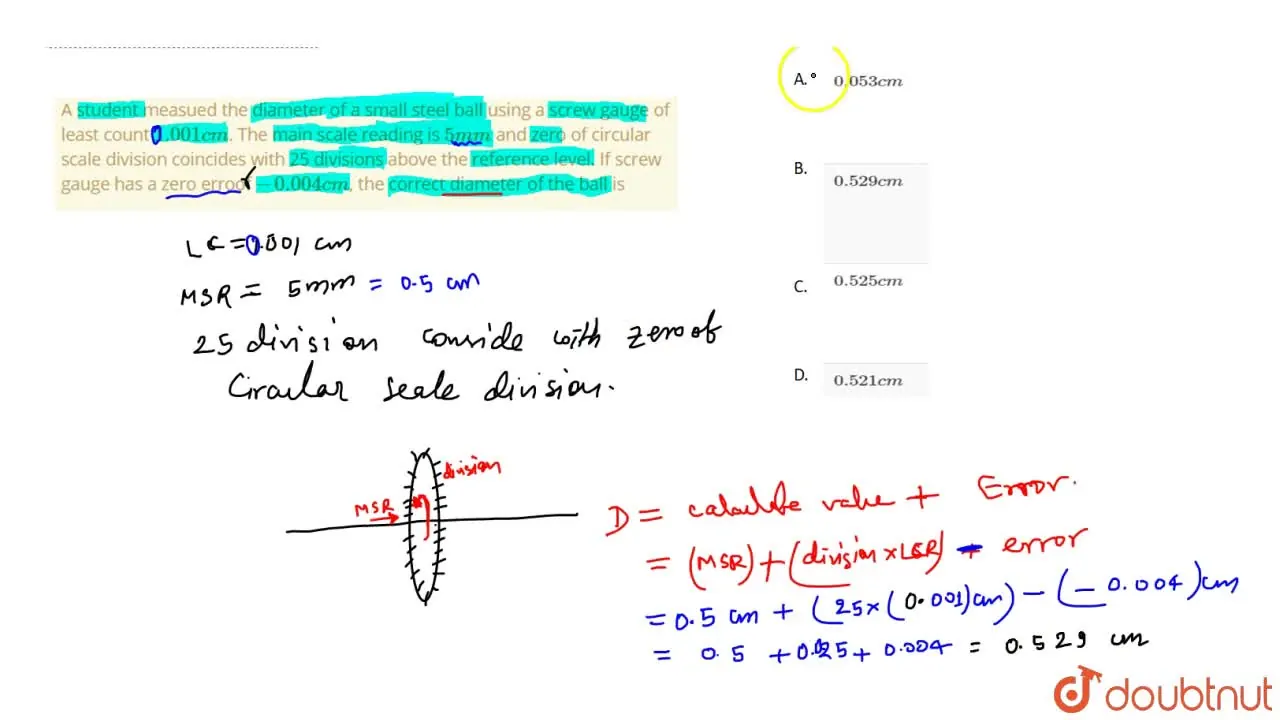 A student measued the diameter of a small steel ball using a screw gauge of
least count 0.001cm. The main scale reading is 5mm and zero of circular
scale division coincides with 25 divisions above the reference level. If screw
gauge has a zero error −0.004cm, the correct diameter of the ball is
A. 0.053cm
B. 0.529cm
C. 0.525cm
D. 0.521cm
LC = 0.001 cm
MSR = 5mm = 0.5 cm
25 division conside with zero of
Circular scale division.
division
MSR
D = calculate value + Error.
= (MSR) + (division × LCR) - error
= 0.5 cm + (25 × (0.001) cm) − (−0.004) cm
= 0.5 + 0.025 + 0.004 = 0.529 cm
doubtnut